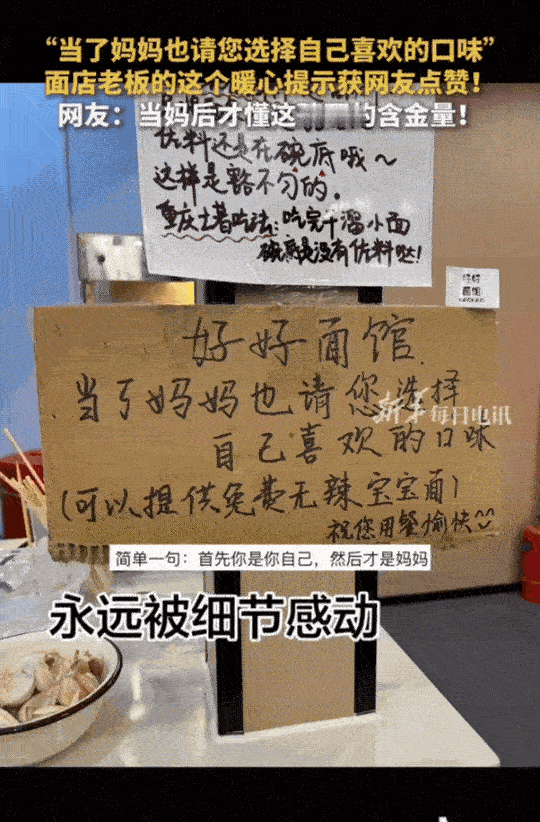 “当了妈妈也请您选择自己喜欢的口味”
面店老板的这个暖心提示获网友点赞！
网友：当妈后才懂这 的含金量！
佐料还是在碗底哦～
这样是豁不匀的．
重庆土著吃法：吃完干溜小面
碗底是没有佐料哒！
好好面馆
好好面馆．
当了妈妈也请您选择
自己喜欢的口味
新华每日电讯
（可以提供免费无辣宝宝面）
祝您用餐愉快
简单一句：首先你是你自己，然后才是妈妈
永远被细节感动